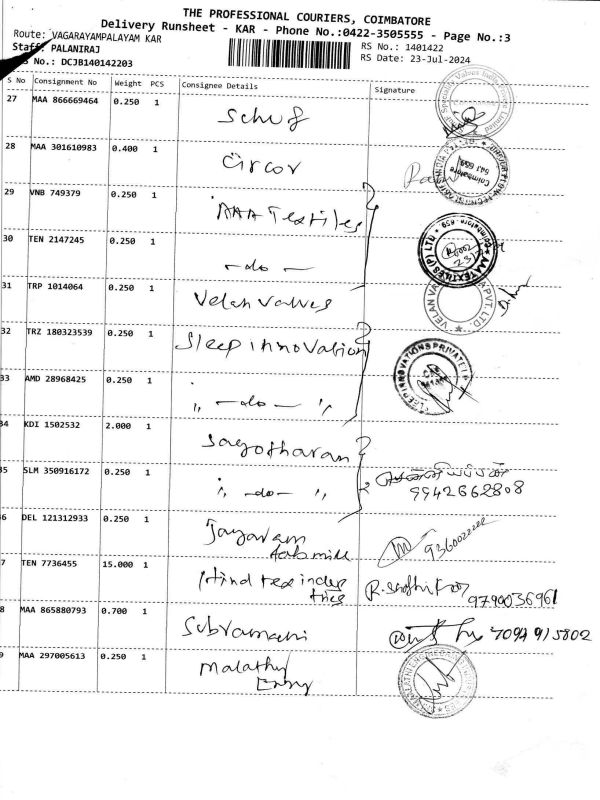 THE PROFESSIONAL COURIERS, COIMBATORE
Delivery Runsheet - KAR - Phone No.:0422-3505555 - Page No.:3
Route: VAGARAYAMPALAYAM KAR
Staff: PALANIRAJ
S No.: DCJB140142203
RS No.: 1401422
RS Date: 23-Jul-2024
S No Consignment No Weight PCS Consignee Details Signature
27 MAA 866669464 0.250 1
28 MAA 301610983 0.400 1 Circor
29 VNB 749379 0.250 1 AAA Textiles
30 TEN 2147245 0.250 1 -do-
31 TRP 1014064 0.250 1 Velan valves
32 TRZ 180323539 0.250 1 Sleep innovation
33 AMD 28968425 0.250 1 ,, -do- ,,
34 KDI 1502532 2.000 1 Sagotharan
35 SLM 350916172 0.250 1 ,, -do- ,, 9942662808
6 DEL 121312933 0.250 1 Jayaram
7 TEN 7736455 15.000 1 Hind tex indus
tries 9790036961
8 MAA 865880793 0.700 1 Subramani 7094915802
9 MAA 297005613 0.250 1 Malathy
Engg